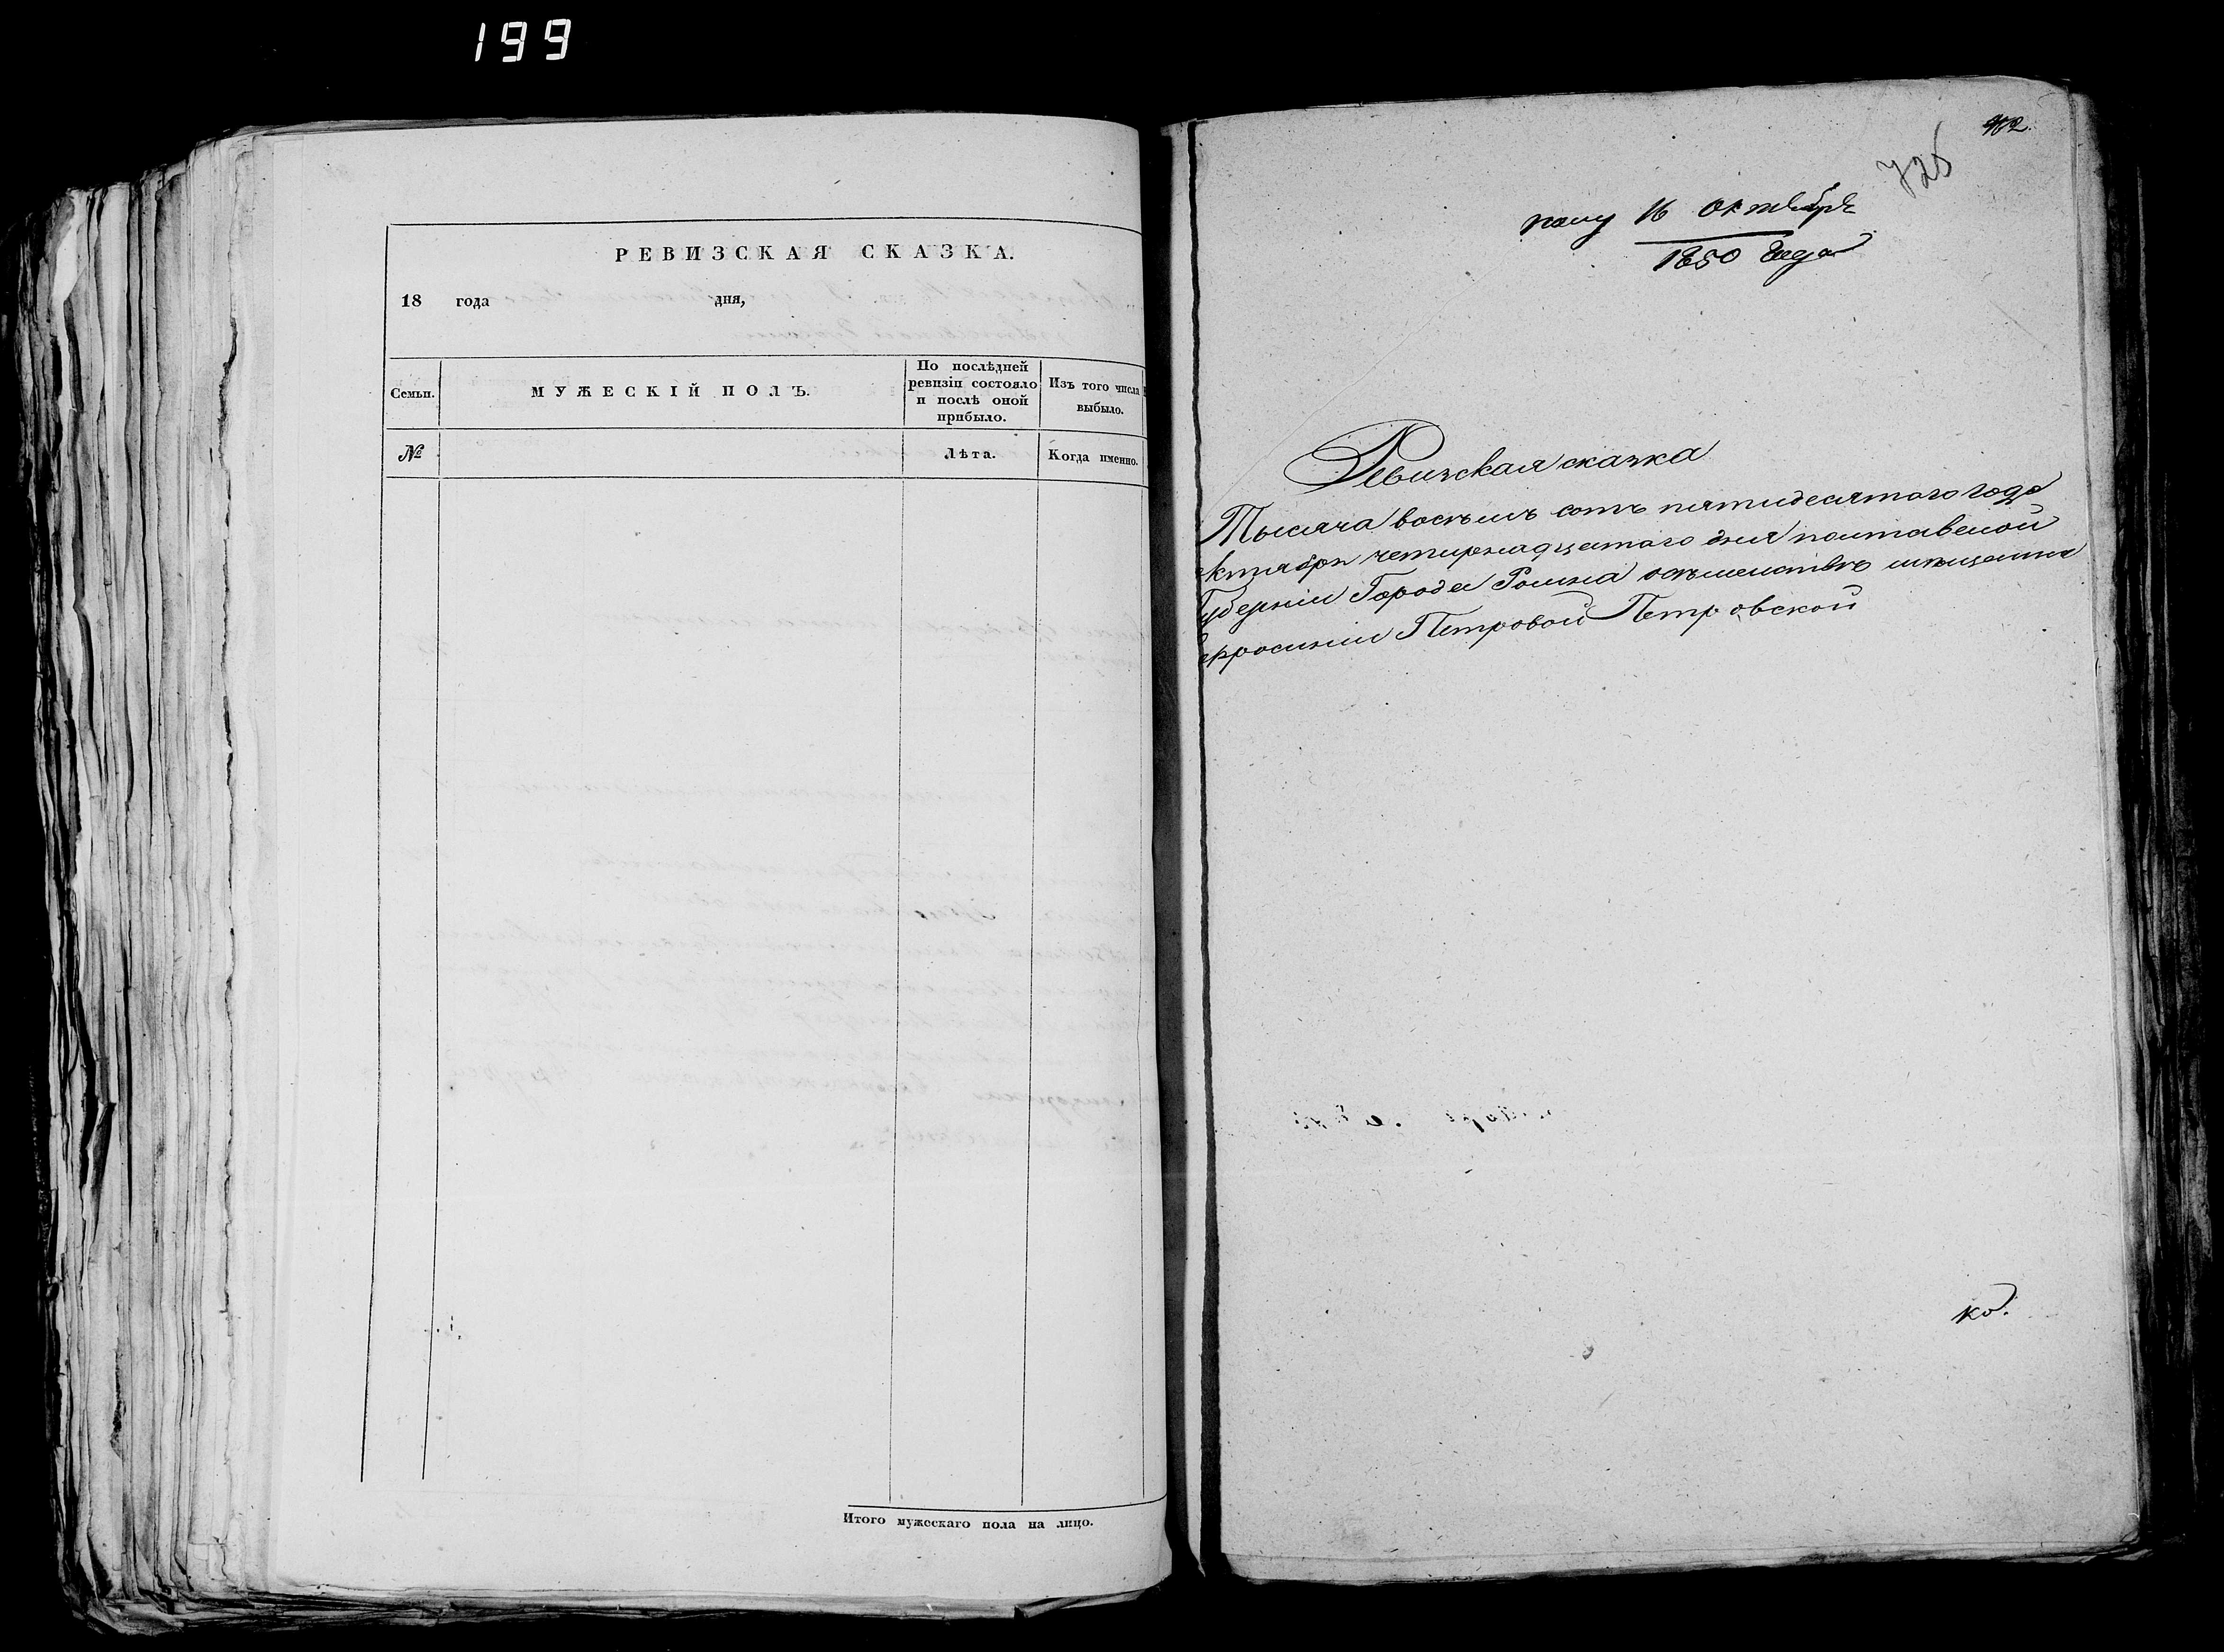 199
РЕВИЗСКАЯ СКАЗКА.
18 года дня,
Семьи.
МУЖЕСКІЙ ПОЛЪ.
По послѣдней
ревизіи состояло
и послѣ оной
прибыло.
Изъ того числа
выбыло.
№
Лѣта.
Когда именно.
Итого мужескаго пола на лицо.
725
16 октября
1850 года
Ревизская сказка
Тысяча восемъ сотъ пятидесятого года
ктября четирнадцетого дня полтавской
губерніи Города Ромна мещанки
фросиніи Петровой Петровской
ко.